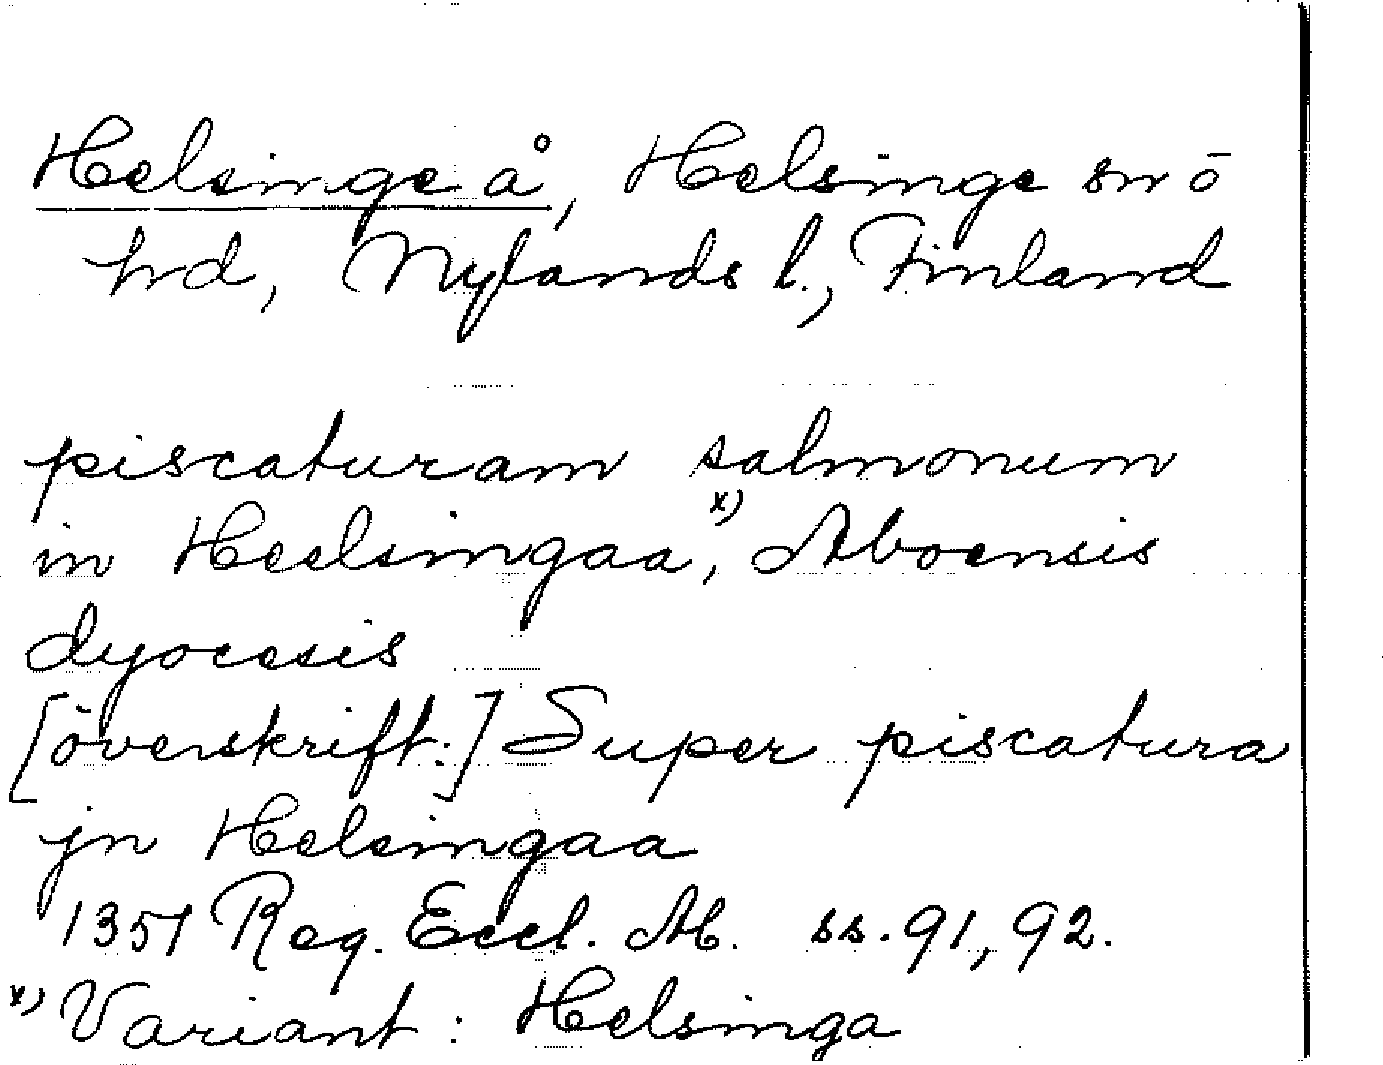 Helsinge å, Helsinge sn ō
hd, Nylands l., Finland
piscaturam salmonum
in Heelsingaa,ˣ⁾ Aboensis
dyocesis
[överskift:] Super piscatura
jn Helsingaa
1351 Reg. Eccl. Ab. ss. 91, 92.
ˣ⁾ Variant: Helsinga